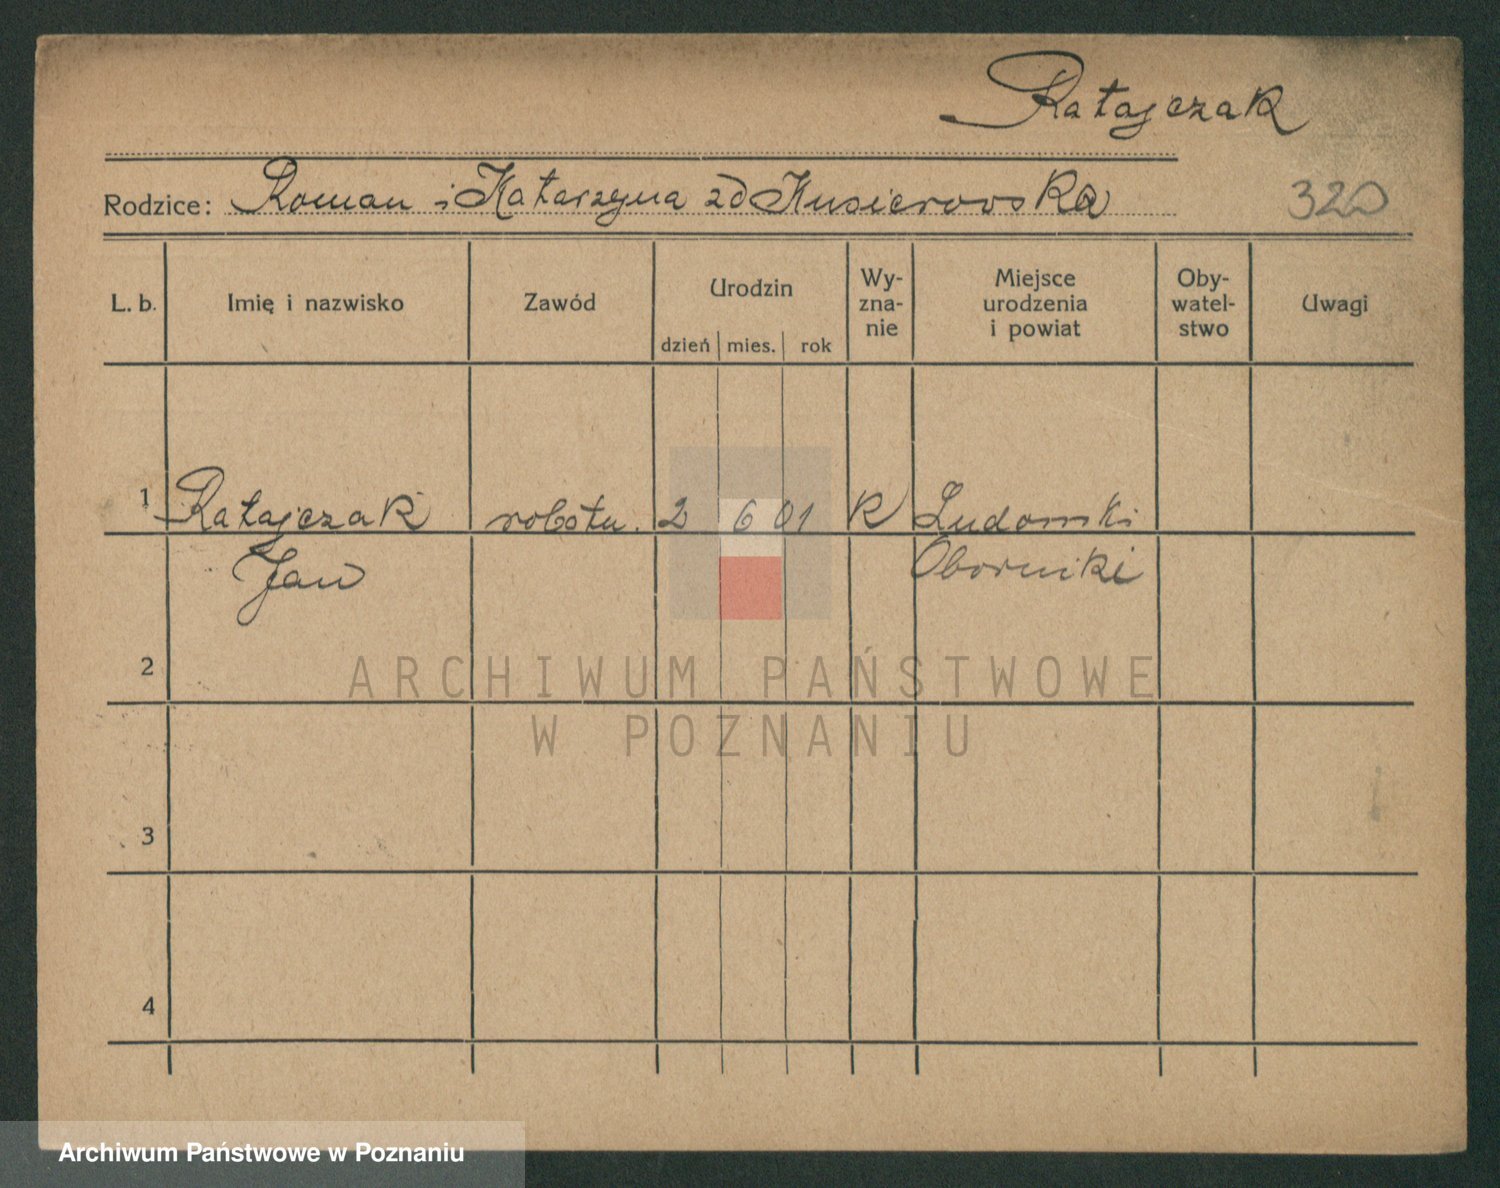 Ratajczak
Rodzice: Roman i Katarzyna zd Kusierowska
320
L. b. Imię i nazwisko Zawód Urodzin dzień mies. rok Wy-zna-nie Miejsce urodzenia i powiat Oby-watel-stwo Uwagi
1 Ratajczak robotn. 2 6 01 R Ludomki
Jan Oborniki
2
3
4
ARCHIWUM PAŃSTWOWE
W POZNANIU
Archiwum Państwowe w Poznaniu